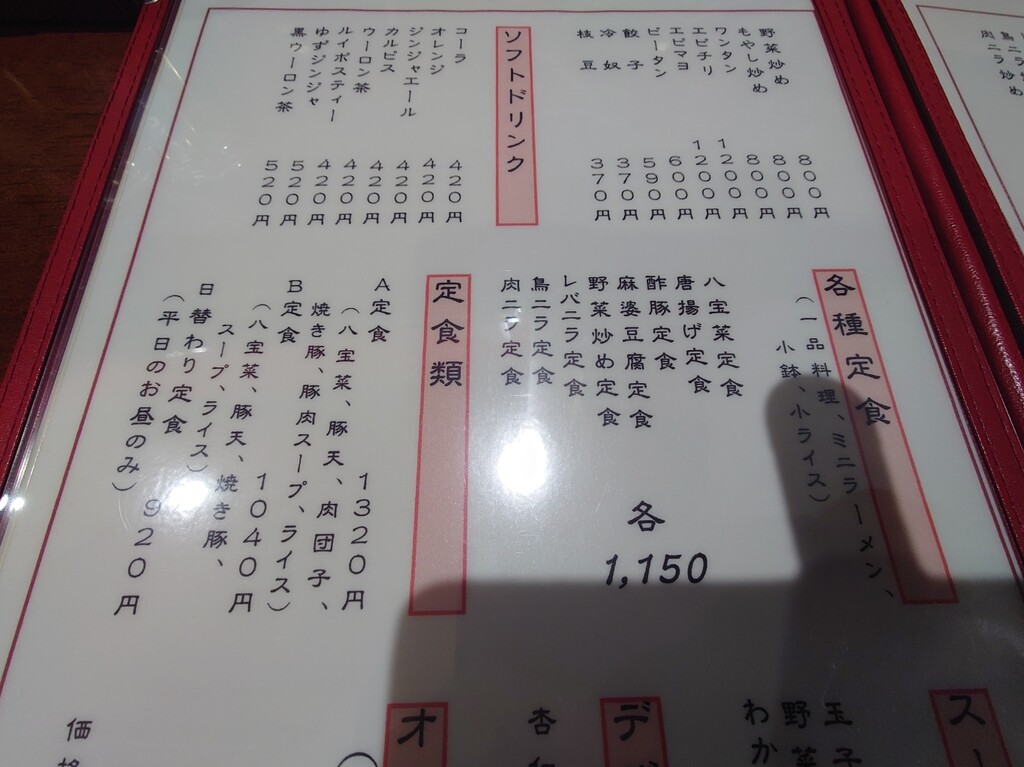 野菜炒め 800円
もやし炒め 800円
ワンタン 800円
エビチリ 1200円
エビマヨ 1200円
ピータン 600円
餃子 590円
冷奴 370円
枝豆 370円
ソフトドリンク
コーラ 420円
オレンジ 420円
ジンジャエール 420円
カルピス 420円
ウーロン茶 420円
ルイボスティー 420円
ゆずジンジャ 520円
黒ウーロン茶 520円
各種定食
(一品料理、ミニラーメン、
小鉢、小ライス)
八宝菜定食
唐揚げ定食
酢豚定食
麻婆豆腐定食
野菜炒め定食
レバニラ定食
鳥ニラ定食
肉ニラ定食
各
1,150
定食類
A定食 1320円
(八宝菜、豚天、肉団子、
焼き豚、豚肉スープ、ライス)
B定食 1040円
(八宝菜、豚天、焼き豚、
スープ、ライス)
日替わり定食 920円
(平日のお昼のみ)
鳥ニラ炒め
肉ニラ炒め
スー
玉子
野菜
わか
デ
杏
オ
価